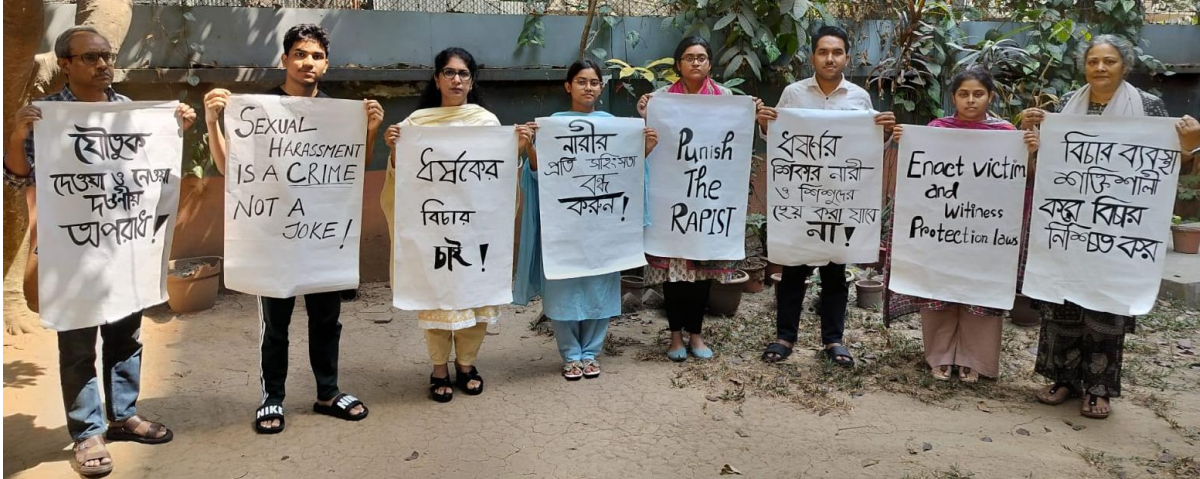 যৌতুক
দেওয়া ও নেওয়া
দণ্ডনীয়
অপরাধ!
SEXUAL
HARASSMENT
IS A CRIME
NOT A
JOKE!
ধর্ষকের
বিচার
চাই!
নারীর
প্রতি সহিংসতা
বন্ধ
করুন!
Punish
The
RAPIST
ধর্ষণের
শিকার নারী
ও শিশুদের
হেয় করা যাবে
না!
Enact victim
and
Witiness
Protection laws
বিচার ব্যবস্থা
শক্তিশালী
করে বিচার
নিশ্চিত কর
NIKE